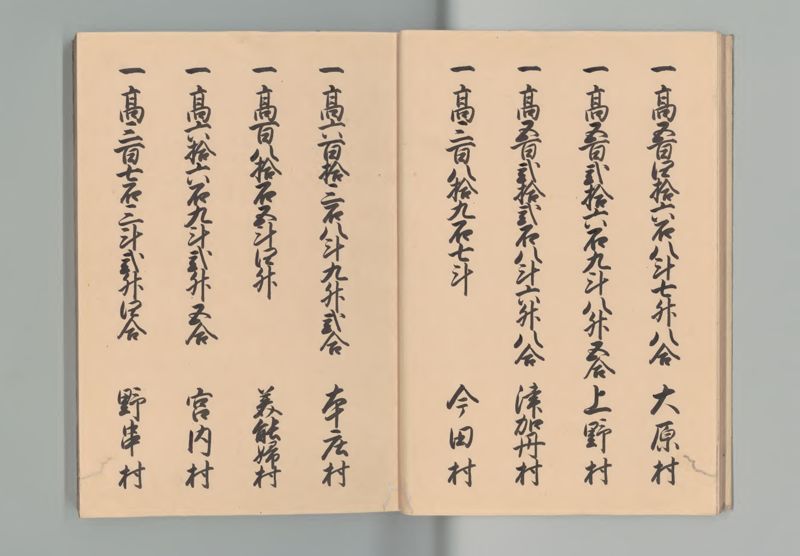 一高五百四拾六石八斗七升八合 大原村
一高五百弐拾六石九斗八升五合 上野村
一高五百弐拾弐石八斗六升八合 津加丹村
一高三百八拾九石七斗 今田村
一高六百拾三石八斗九升弐合 本庄村
一高百八拾石五斗四升 美能婦村
一高六拾六石九斗弐升五合 宮内村
一高三百七石三斗弐升四合 野串村